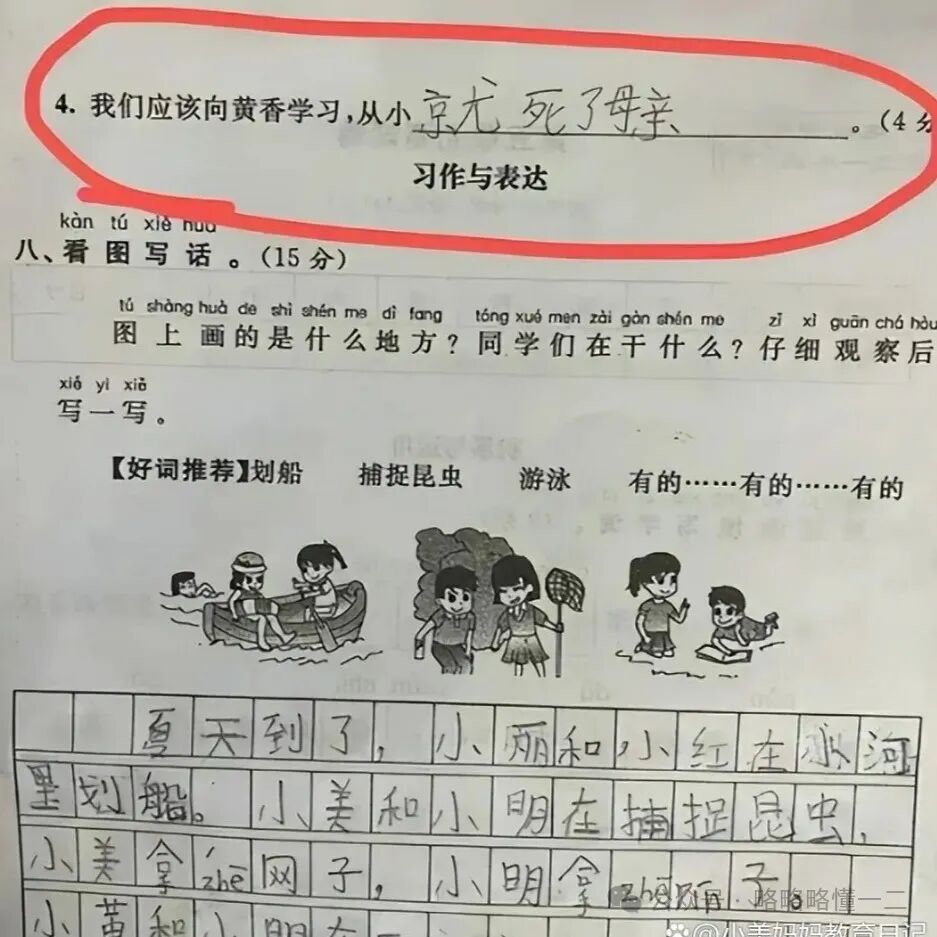 4. 我们应该向黄香学习,从小就死了母亲。(4分
习作与表达
kàn tú xiě huà
八、看图写话。(15分)
tú shàng huà de shì shén me dì fang tóng xué men zài gàn shén me zǐ xì guān chá hòu
图上画的是什么地方?同学们在干什么?仔细观察后
xiě yi xiě
写一写。
【好词推荐】划船 捕捉昆虫 游泳 有的……有的……有的
夏天到了,小丽和小红在水河
里划船。小美和小明在捕捉昆虫,
小美拿zhe网子,小明拿zhe瓶子。
小黄和小明在
公众号·略略略懂一二
小美妈妈教育日记